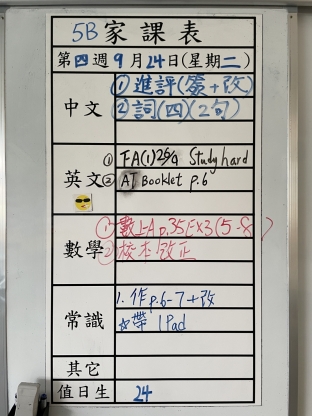 5B 家課表
第四週 9月24日(星期二)
中文
① 進評(簽+改)
② 詞(四)(2句)
英文
① FA(1) 26/9 Study hard
② AJ Booklet p.6
數學
① 數上A p.35 Ex3 (5-8)
② 校本改正
常識
1. 作 p.6-7+改
☆帶 iPad
其它
值日生 24